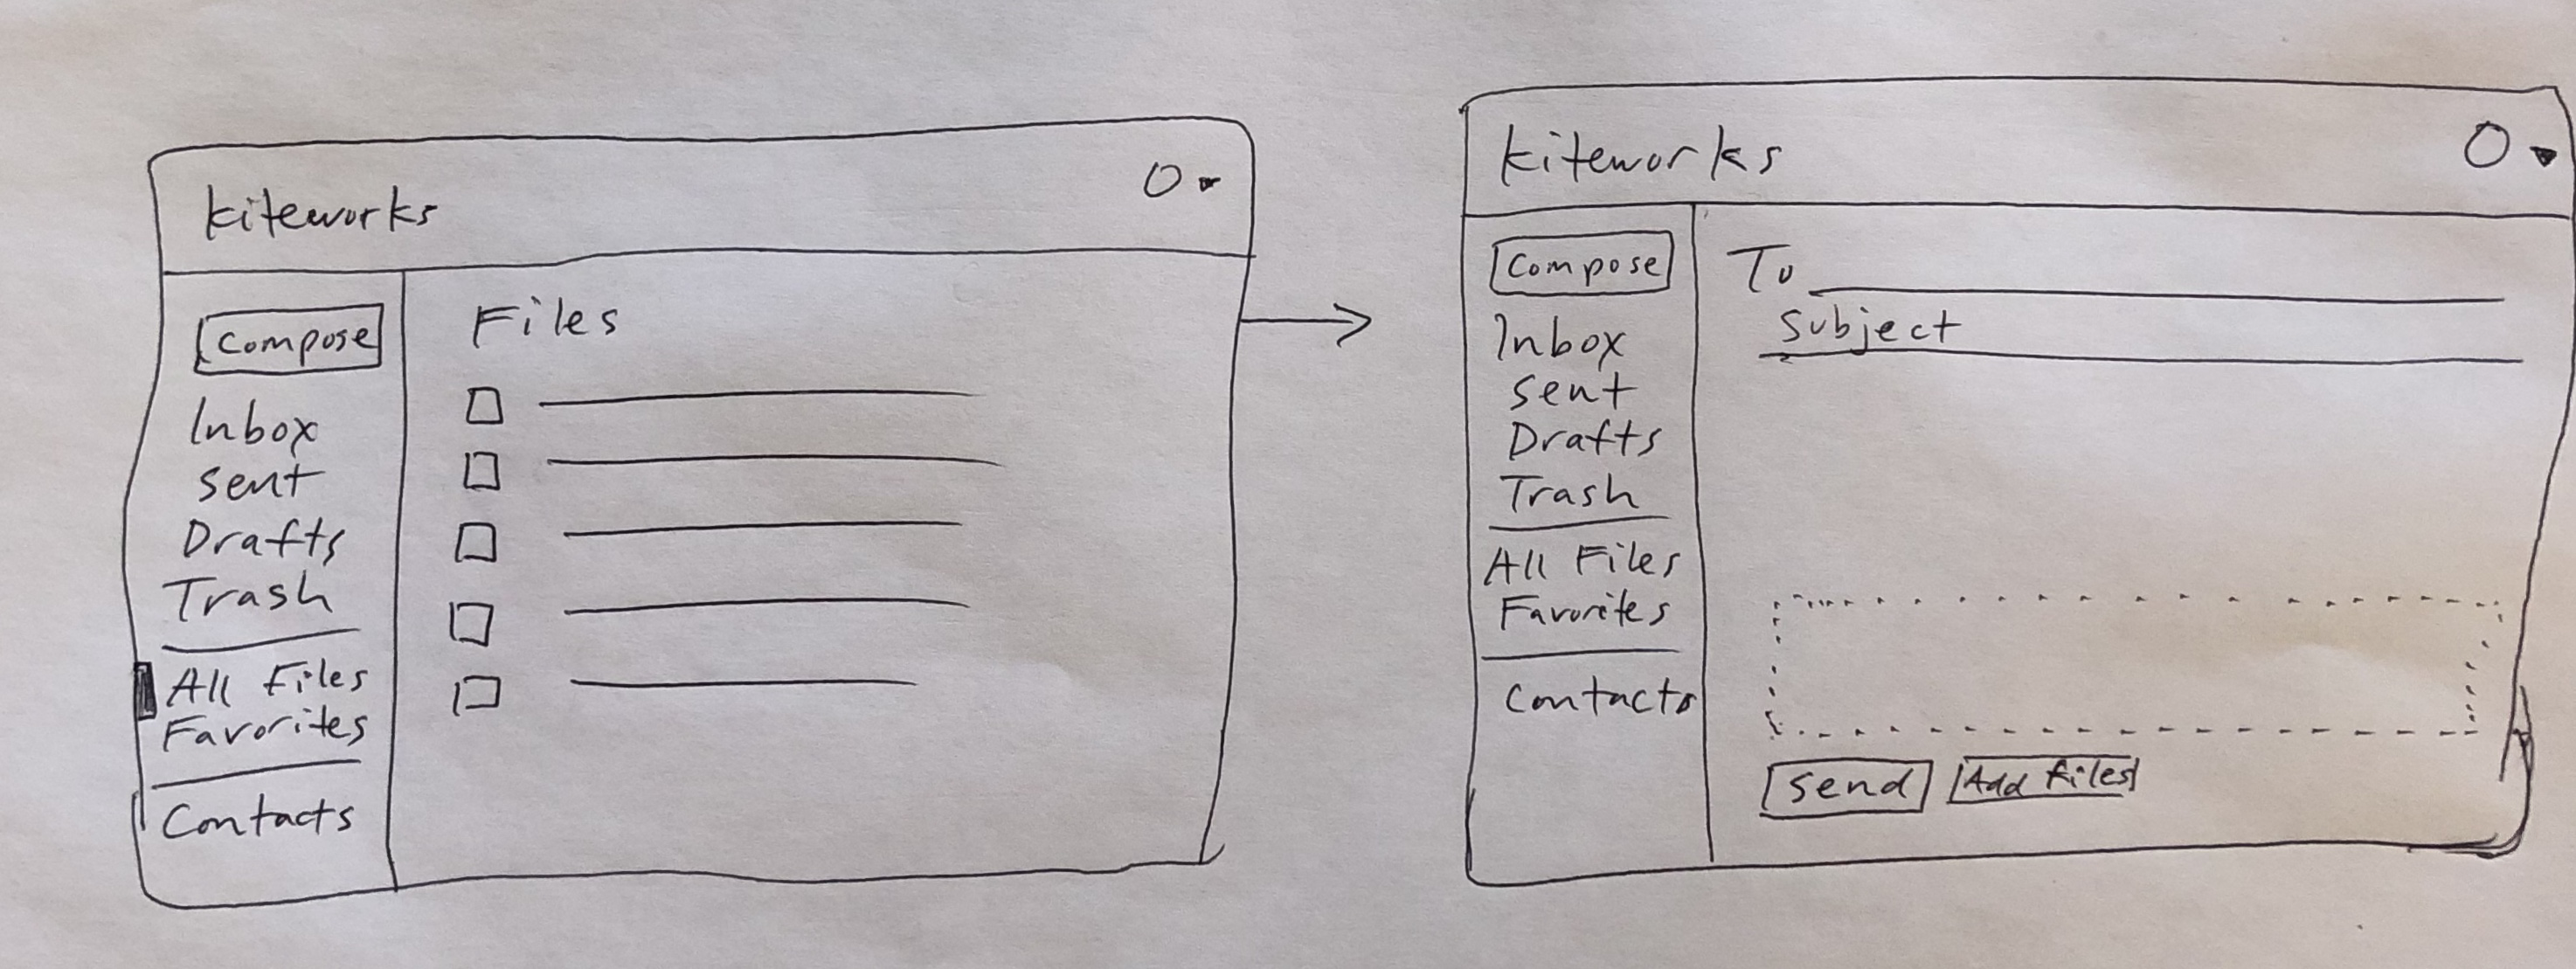 kiteworks
Compose
Inbox
Sent
Drafts
Trash
All Files
Favorites
Contacts
Files
kiteworks
Compose
Inbox
Sent
Drafts
Trash
All Files
Favorites
Contacts
To
Subject
Send
Add Files